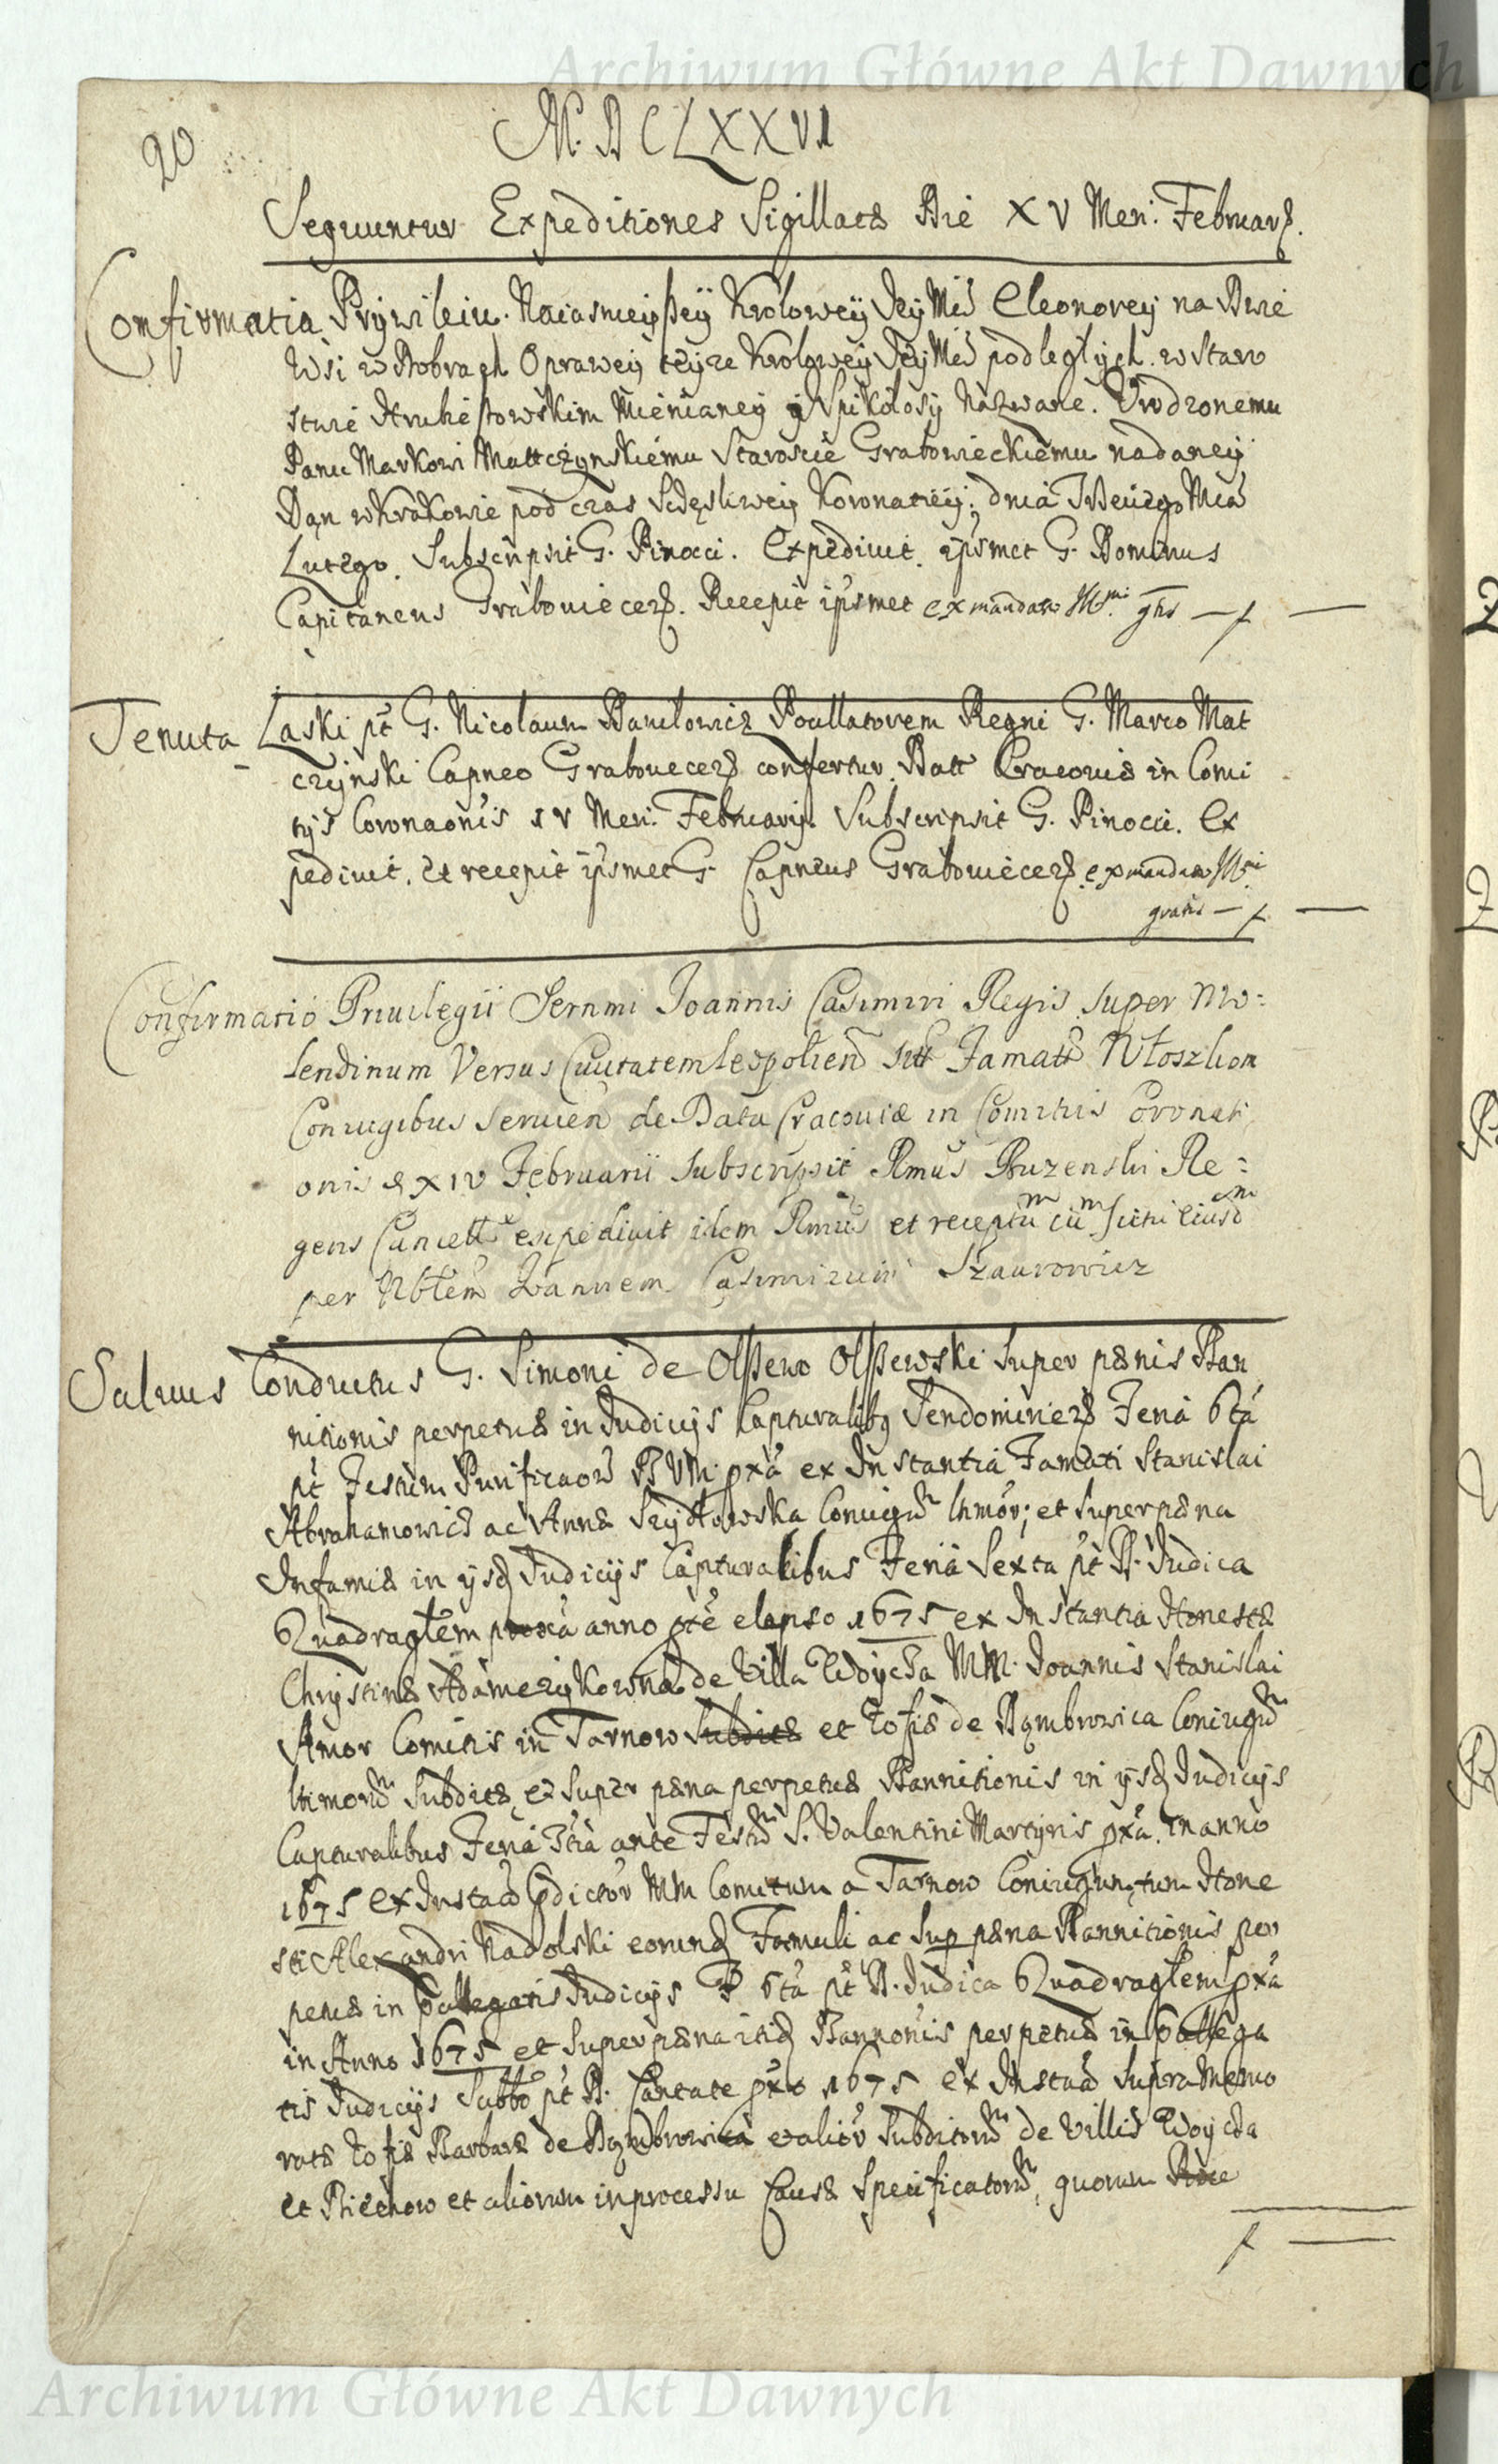 Archiwum Główne Akt Dawnych
20
M.DCLXXVI
Sequuntur Expeditiones Sigillatæ Die XV Men: Februarÿ.
Confirmatia Prÿwileiu. Naiasnieÿszeÿ Kroloweÿ JeÿMci Eleonoreÿ na Dwie
Wsi w Dobrach Opraweÿ teÿze Kroloweÿ JeÿMci podległÿch. w Staro
stwie Hrubieszowskim Mienianeÿ ÿ Spikołosÿ Nazwane. Vrodzonemu
Panu Markowi Mattczÿnskiemu Staroscie Grabowieckiemu nadaneÿ
Dan w Krakowie pod czas Sczęsliweÿ Koronatieÿ, dnia Mca
Lutego. Subscripsit G. Pinocci. Expediuit. ipsmet G. Dominus
Capitaneus Grabouiecen. Recepit ipsmet ex mandato Illmi gtis
Tenuta Laski pt G. Nicolaum Danilowicz Pocillatorem Regni G. Marco Mat
czÿnski Capneo Grabouecen confertur. Datt Cracouiæ in Comi
tÿs Coronaonis Men: Februarÿ. Subscripsit G. Pinocci. Ex
pediuit. et recepit ipsmet G. Capneus Grabouiecen. ex mandato Illmi
gratis
Confirmatio Priuilegii Sernmi Joannis Casimiri Regis super Mo:
lendinum Versus Ciuitatem Leopolien sitt Famatt Włoszkom
Coniugibus seruien de Data Cracouiæ in Comitiis Coronati
onis XIV Februarii subscripsit Rmus Buzenski Re:
gens Cancell expediuit idem Rmus et receptu cu
per Nbtem Joannem Casimirum Szaurowicz
Saluus Conductus G. Simoni de Olszewo Olszewski super pænis Ban
nitionis perpetuæ in Judicÿs Capturalibus Sendomirien Feria 6ta
pt Festum Purificaois B V M. pxa ex Instantia Famati Stanislai
Abrahamowicz ac Annæ Szÿdłowska Coniugum; et super pæna
Infamiæ in ÿsd Judicÿs Capturalibus Feria Sexta pt D. Judica
Quadraglem pxa anno pte elapso 1675 ex Instantia Honestæ
Christinæ Adamczÿkowna de Villa Woÿcza MM. Joannis Stanislai
Amor Comitis in Tarnow Subditæ et Zofiæ de Dąmbrowica Coniugum
Subditæ, et super pæna perpetuæ Bannitionis in ÿsd Judicÿs
Capturalibus Feria 3tia ante Festum S. Valentini Martÿris pxa. in anno
1675 ex Instao MM Comitum a Tarnow Coniugum, tum Hone
sti Alexandri Nadolski eorund Famuli ac sup pæna Bannitionis per
petuæ in Judicÿs F 6ta pt D. Judica Quadraglem pxa
in Anno 1675 et super pæna itid Bannonis perpetuæ in
tis Judicÿs Sabbo pt D. Cantate pxo 1675 ex Instao supra Memo
ratæ Zofiæ Barbaræ de Dąmbrowica Subditorum de Villis Woÿcza
et Biechow et aliorum in processu Causæ Specificatorum, quorum
Archiwum Główne Akt Dawnych